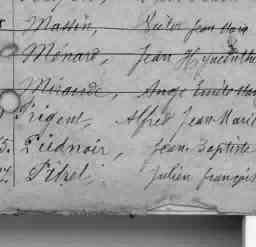 Massin, Victor Jean Marie
Ménard, Jean Hyacinthe
Mirande, Ange Emile Mar
Prigent, Alfred Jean Marie
Piednoir, Jean Baptiste
Pihel, Julien françois